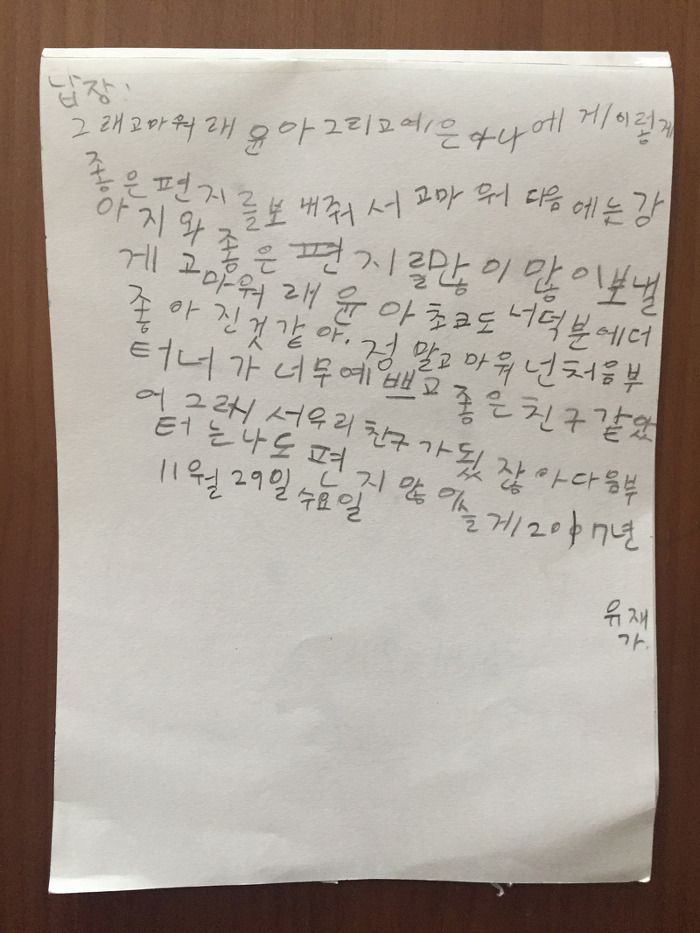 납장:
그래고마워래윤아그리고예은아나에게이렇게
좋은편지를보내줘서고마워다음에는강
아지와좋은편지를많이많이보낼
게고마워래윤아초코도너덕분에더
좋아진것같아.정말고마워넌처음부
터너가너무예쁘고좋은친구같았
어그래서우리친구가됬잖아다음부
터는나도편지많이쓸게2017년
11월29일수요일
유재
가.